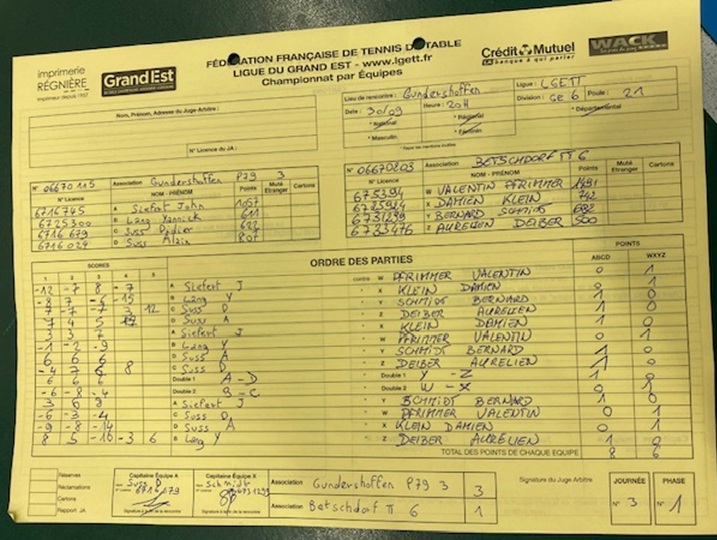 imprimerie
RÉGNIÈRE
imprimeur depuis 1907
Grand Est
FÉDÉRATION FRANÇAISE DE TENNIS DE TABLE
LIGUE DU GRAND EST - www.lgett.fr
Championnat par Équipes
Crédit Mutuel
LA banque à qui parler
WACK
Nom, Prénom, Adresse du Juge-Arbitre :
N° Licence du JA :
Lieu de rencontre : Gundershoffen
Ligue : LGETT
Date : 30/09
Heure : 20H
Division : GE 6
Poule : 21
* National
* Régional
* Départemental
* Masculin
* Féminin
* Rayer les mentions inutiles
N° 06670115 Association Gundershoffen P79 3
N° Licence NOM - PRÉNOM Points Muté Etranger Cartons
6716745 A Siefert John 1057
6725300 B Lang Yannick 611
6716679 C Suss Didier 622
6716024 D Suss Alain 807
N° 06670203 Association BETSCHDORF TT 6
N° Licence NOM - PRÉNOM Points Muté Etranger Cartons
675394 W VALENTIN PFRIMMER 1491
X DAMIEN KLEIN 742
6731299 Y BERNARD SCHMIDT 682
6733476 Z AURELIEN DEIBER 500
SCORES
ORDRE DES PARTIES
POINTS
1 2 3 4 5
ABCD WXYZ
-12 -7 8 -7 A Siefert J contre W PFRIMMER VALENTIN 0 1
-8 7 -6 -15 B Lang Y " X KLEIN DAMIEN 0 1
7 -7 -7 3 12 C Suss D " Y SCHMIDT BERNARD 1 0
7 4 5 D Suss A " Z DEIBER AURELIEN 1 0
3 7 7 A Siefert J " X KLEIN DAMIEN 1 0
-1 -2 -9 B Lang Y " W PFRIMMER VALENTIN 0 1
6 6 6 D Suss A " Y SCHMIDT BERNARD 1 0
-4 7 6 8 C Suss D " Z DEIBER AURELIEN 1 0
6 6 6 Double 1 A-D " Double 1 Y - Z 1 0
-6 -8 -4 Double 2 B-C " Double 2 W - X 0 1
3 6 8 A Siefert J " Y SCHMIDT BERNARD 1 0
-6 -3 -4 C Suss D " W PFRIMMER VALENTIN 0 1
-9 -8 -14 D Suss A " X KLEIN DAMIEN 0 1
8 5 -10 -3 6 B Lang Y " Z DEIBER AURÉLIEN 1 0
TOTAL DES POINTS DE CHAQUE EQUIPE 8 6
Réserves
Réclamations
Cartons
Rapport JA
Capitaine Équipe A
Suss D
N° Licence 6716679
Signature à la fin de la rencontre
Capitaine Équipe X
Schmidt
N° Licence 6731299
Signature à la fin de la rencontre
Association Gundershoffen P79 3 3
Association Betschdorf TT 6 1
Signature du Juge Arbitre
JOURNÉE
N° 3
PHASE
N° 1